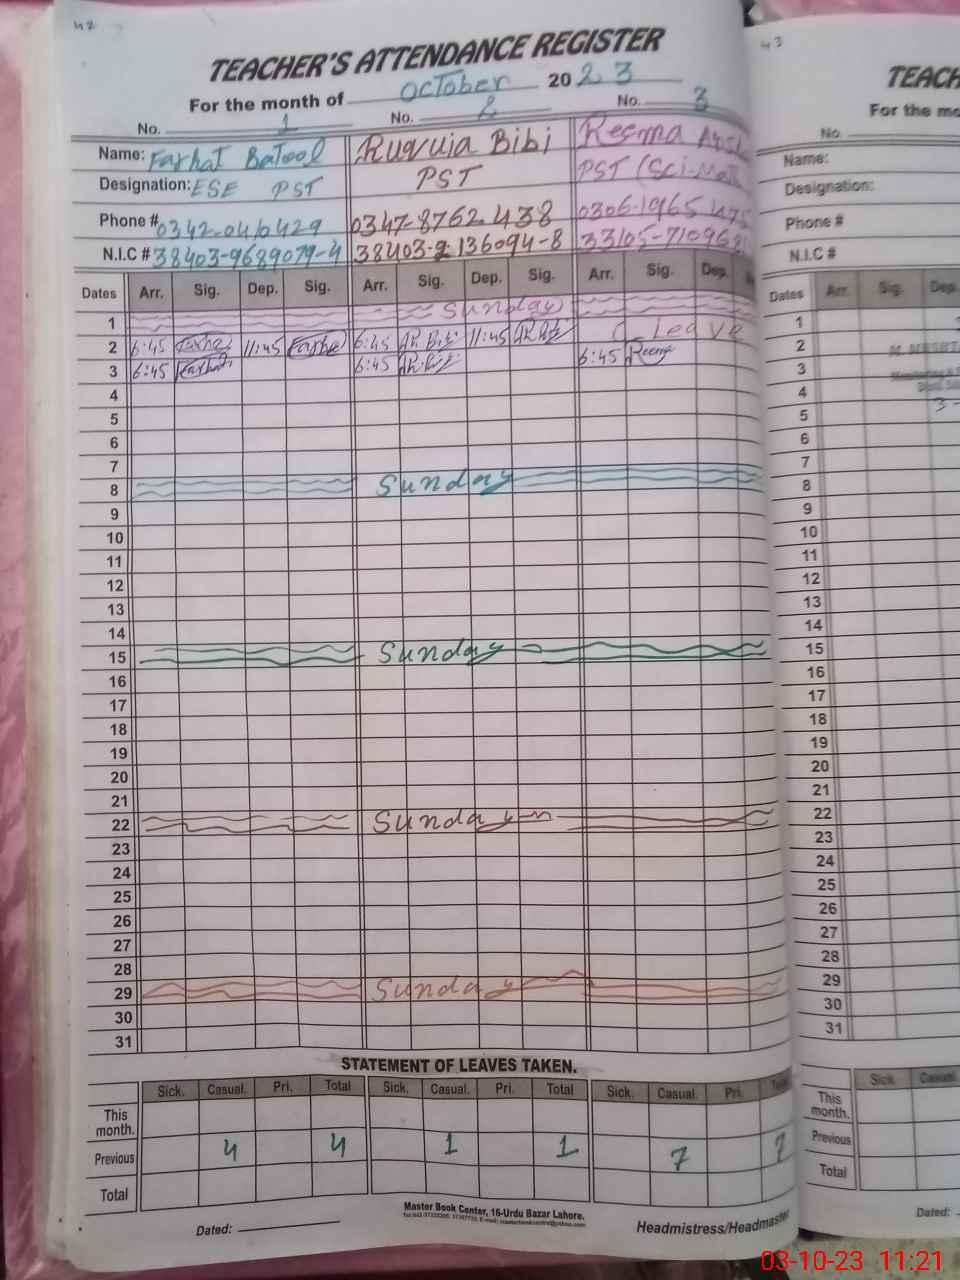 42
TEACHER'S ATTENDANCE REGISTER
For the month of October 2023
No. 1 No. 2 No. 3
Name: Farhat Batool Ruquia Bibi Reema
Designation: ESE PST PST PST (Sci-Math
Phone # 0342-0416429 0347-8762438 0306-1965
N.I.C # 38403-9689079-4 38403-2136094-8 33105-71096
Dates Arr. Sig. Dep. Sig. Arr. Sig. Dep. Sig. Arr. Sig. Dep.
1 Sunday
2 6:45 Farhat 11:45 Farhat 6:45 R.Bibi 11:45 R.Bibi Leave
3 6:45 Farhat 6:45 R.Bibi 6:45 Reema
4
5
6
7
8 Sunday
9
10
11
12
13
14
15 Sunday
16
17
18
19
20
21
22 Sunday
23
24
25
26
27
28
29 Sunday
30
31
STATEMENT OF LEAVES TAKEN.
Sick. Casual. Pri. Total Sick. Casual. Pri. Total Sick. Casual. Pri. Total
This month.
Previous 4 4 1 1 7 7
Total
Master Book Center, 16-Urdu Bazar Lahore.
Dated: Headmistress/Headmaster
43
TEACH
For the mo
No.
Name:
Designation:
Phone #
N.I.C #
Dates Arr. Sig. Dep.
1
2
3
4
5
6
7
8
9
10
11
12
13
14
15
16
17
18
19
20
21
22
23
24
25
26
27
28
29
30
31
Sick. Casual
This month.
Previous
Total
Dated:
03-10-23 11:21